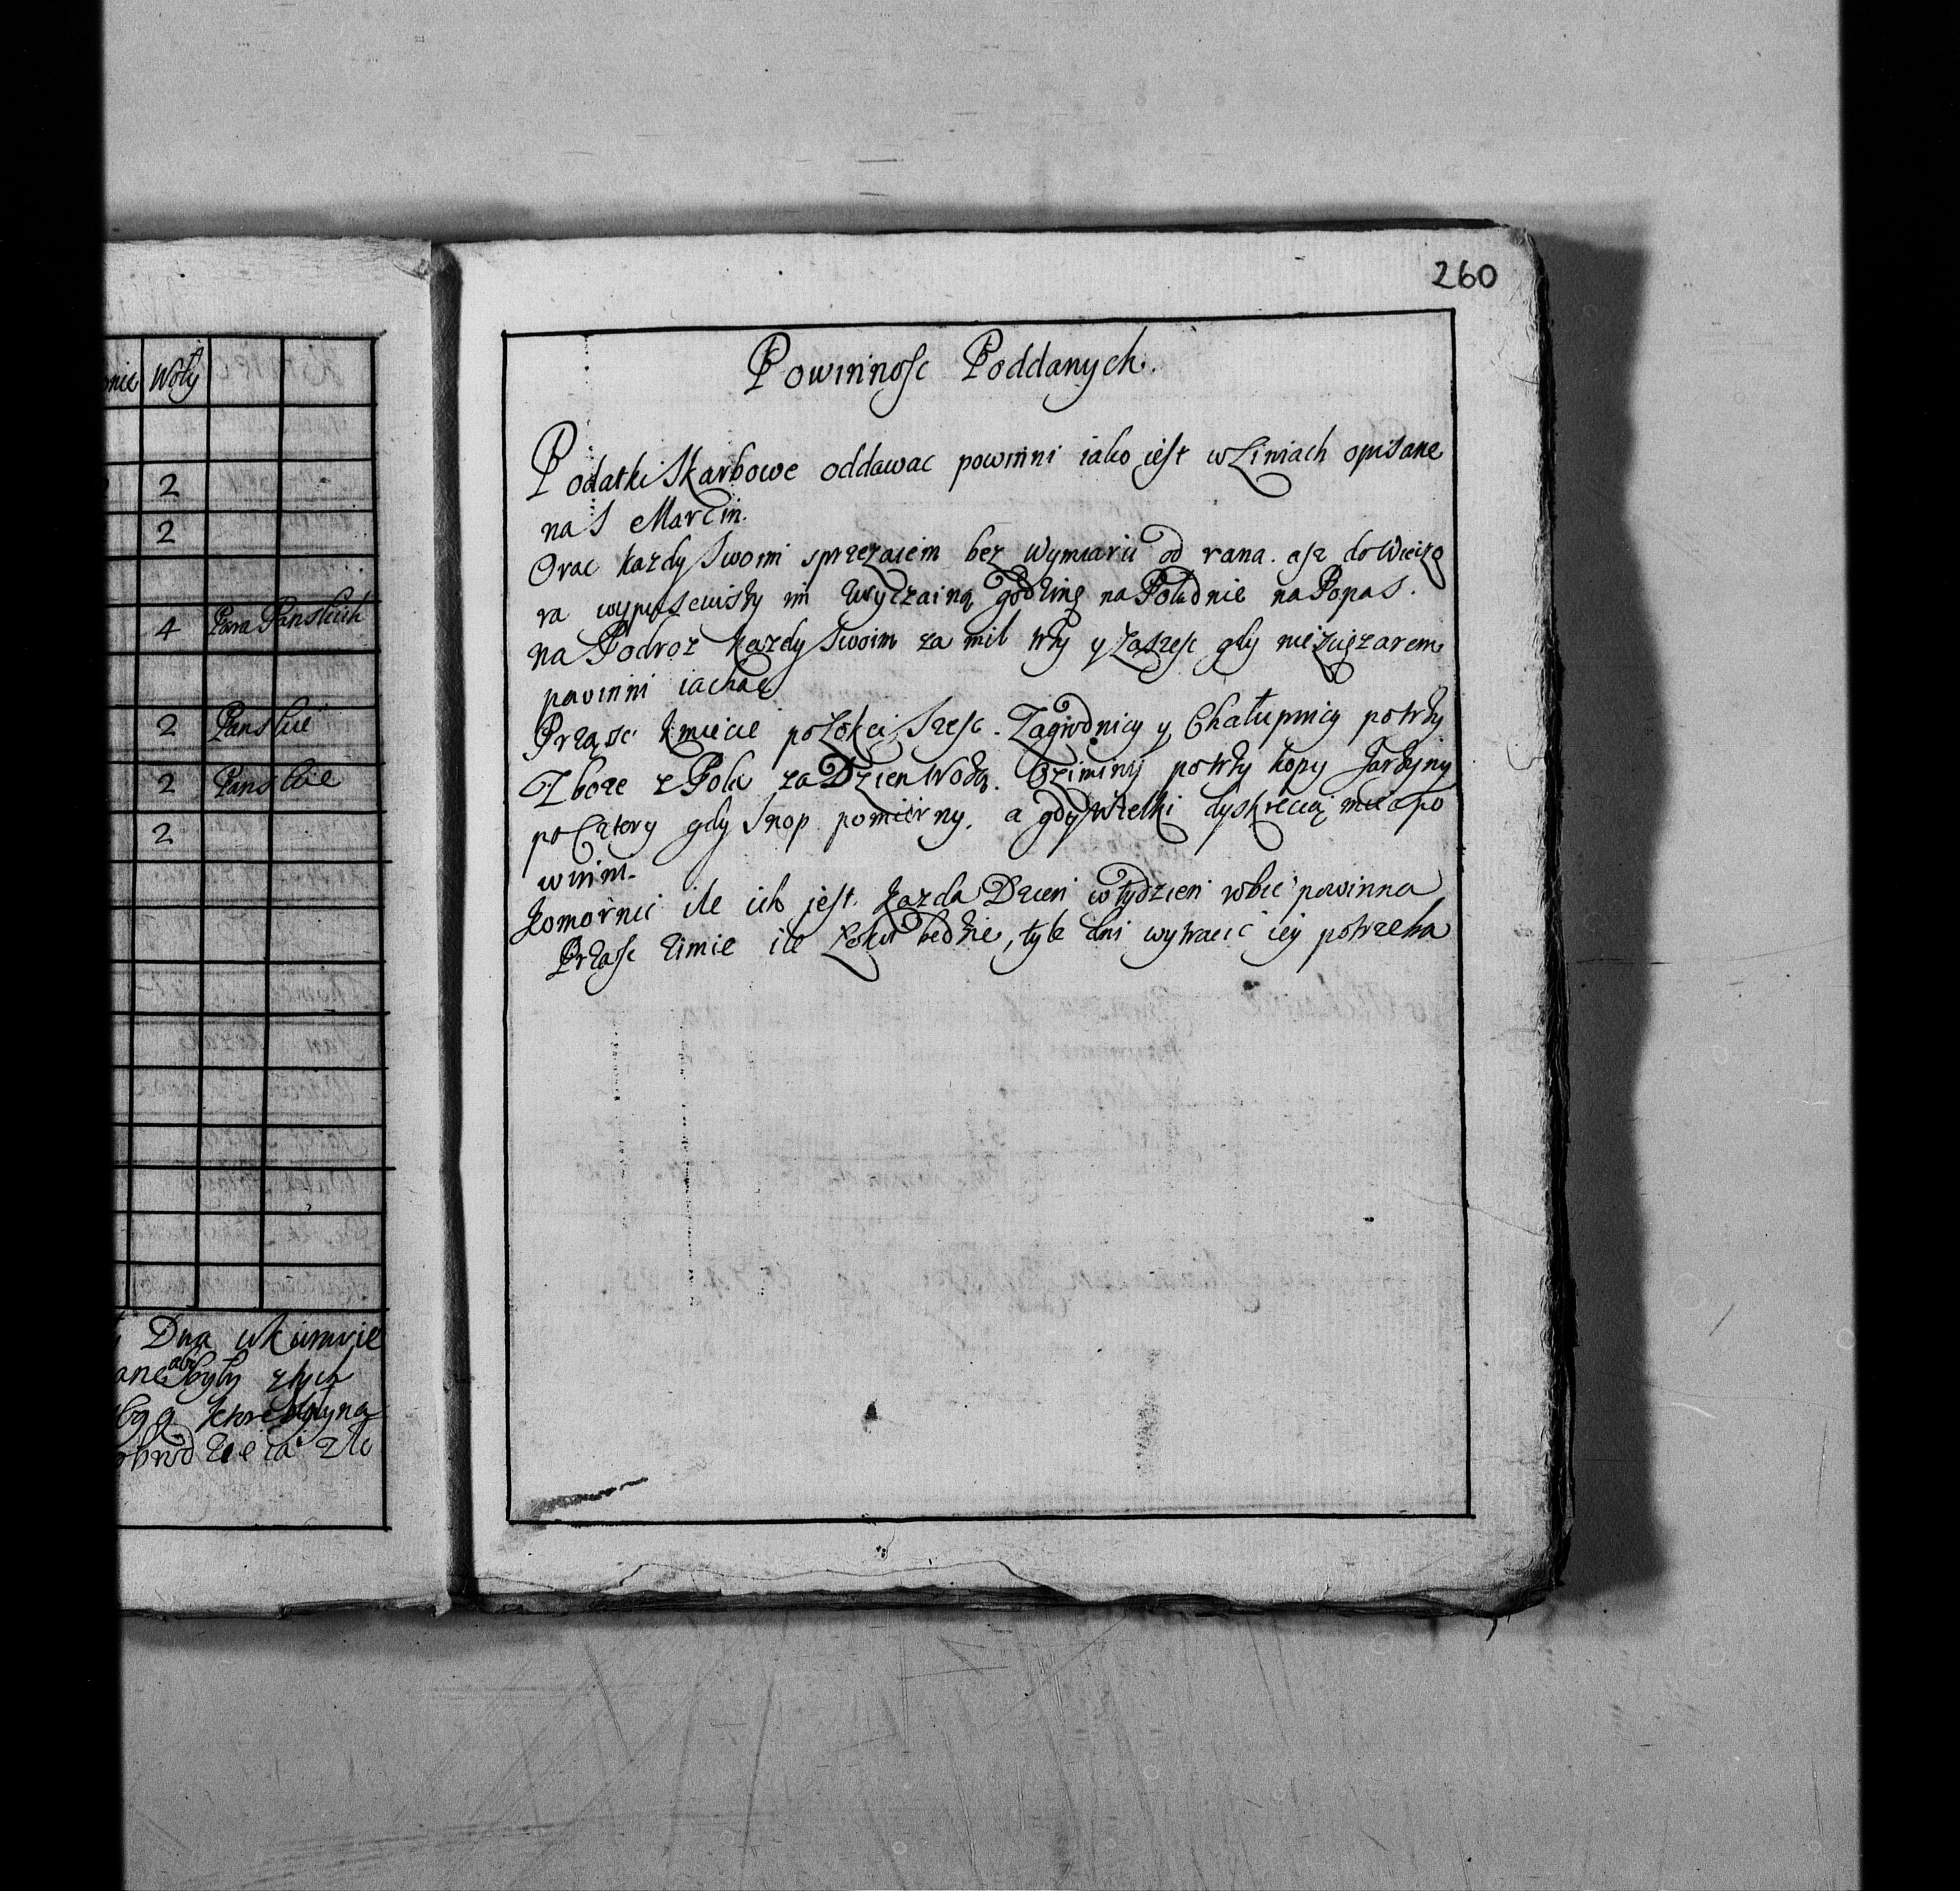 onie Woły
2
2
4 Para Panskich
2 Panskie
2 Panskie
2
Dna
były złych
260
Powinnosc Poddanych.
Podatki Skarbowe oddawac powinni iako iest w Liniach opisane
na S Marcin.
Orac kazdy Swoim sprzezaiem bez wymiaru od rana. asz do Wieczo
ra wypusciwszy im zwyczainą godzinę na Południe na Popas.
na Podroz kazdy Swoim za mil trzy y za szesc gdy nie zcięzarem
powinni iachac
Prząsc kmiecie po Łokci Szesc. Zagrodnicy y Chałupnicy po trzy
Zboze z Pola za Dzien Wozą. Oziminy po trzy kopy Jarzyny
po Cztery gdy Snop pomierny. a gdy wielki dyskrecią miec po
winni.
Komornic ile ich jest. kazda Dzien w tydzien robic powinna
Prząsc zimie ile Łokci bedzie, tyle dni wytracic iey potrzeba